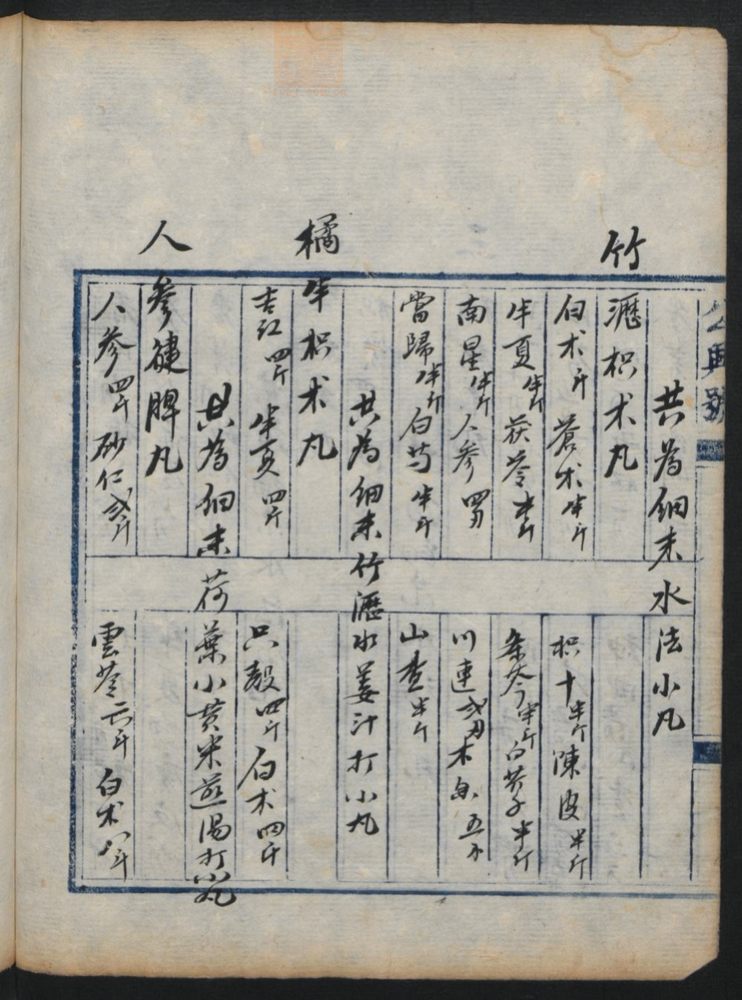 共為細末水法小丸
竹瀝枳术丸
白术斤 蒼术半斤 枳十半斤 陳皮半斤
半夏半斤 茯苓半斤 条芩半斤 白芥子半斤
南星半斤 人參四刄 川連弍刄 木香五小
當歸半斤 白芍半斤 山查半斤
共為細末竹瀝水姜汁打小丸
橘半枳术丸
吉紅四斤 半夏四斤 只殼四斤 白术四斤
共為細末荷葉小黃米煎湯打小丸
人參健脾丸
人參四斤 砂仁弍斤 雲苓六斤 白术八斤